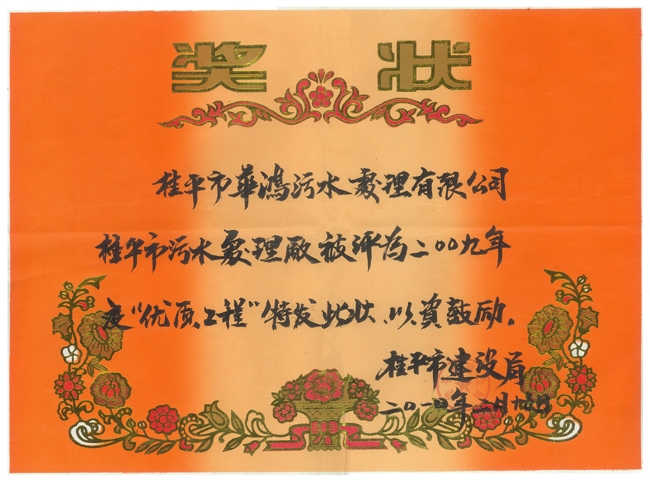 奖状
桂平市華鴻污水處理有限公司
桂平市污水處理廠被评为二00九年
度"优质工程"特发此状、以資鼓励。
桂平市建设局
二0一0年二月